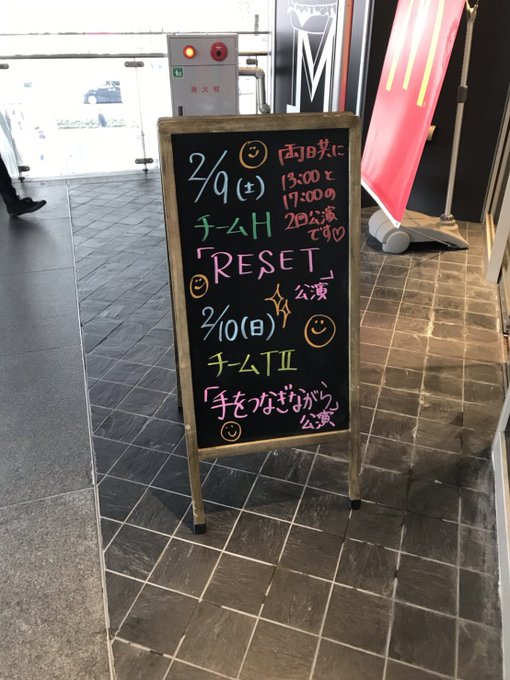 消火栓
M
2/9(土)
両日共に
13:00と
17:00の
2回公演
です♡
チームH
「RESET」
公演
2/10(日)
チームTⅡ
「手をつなぎながら」
公演